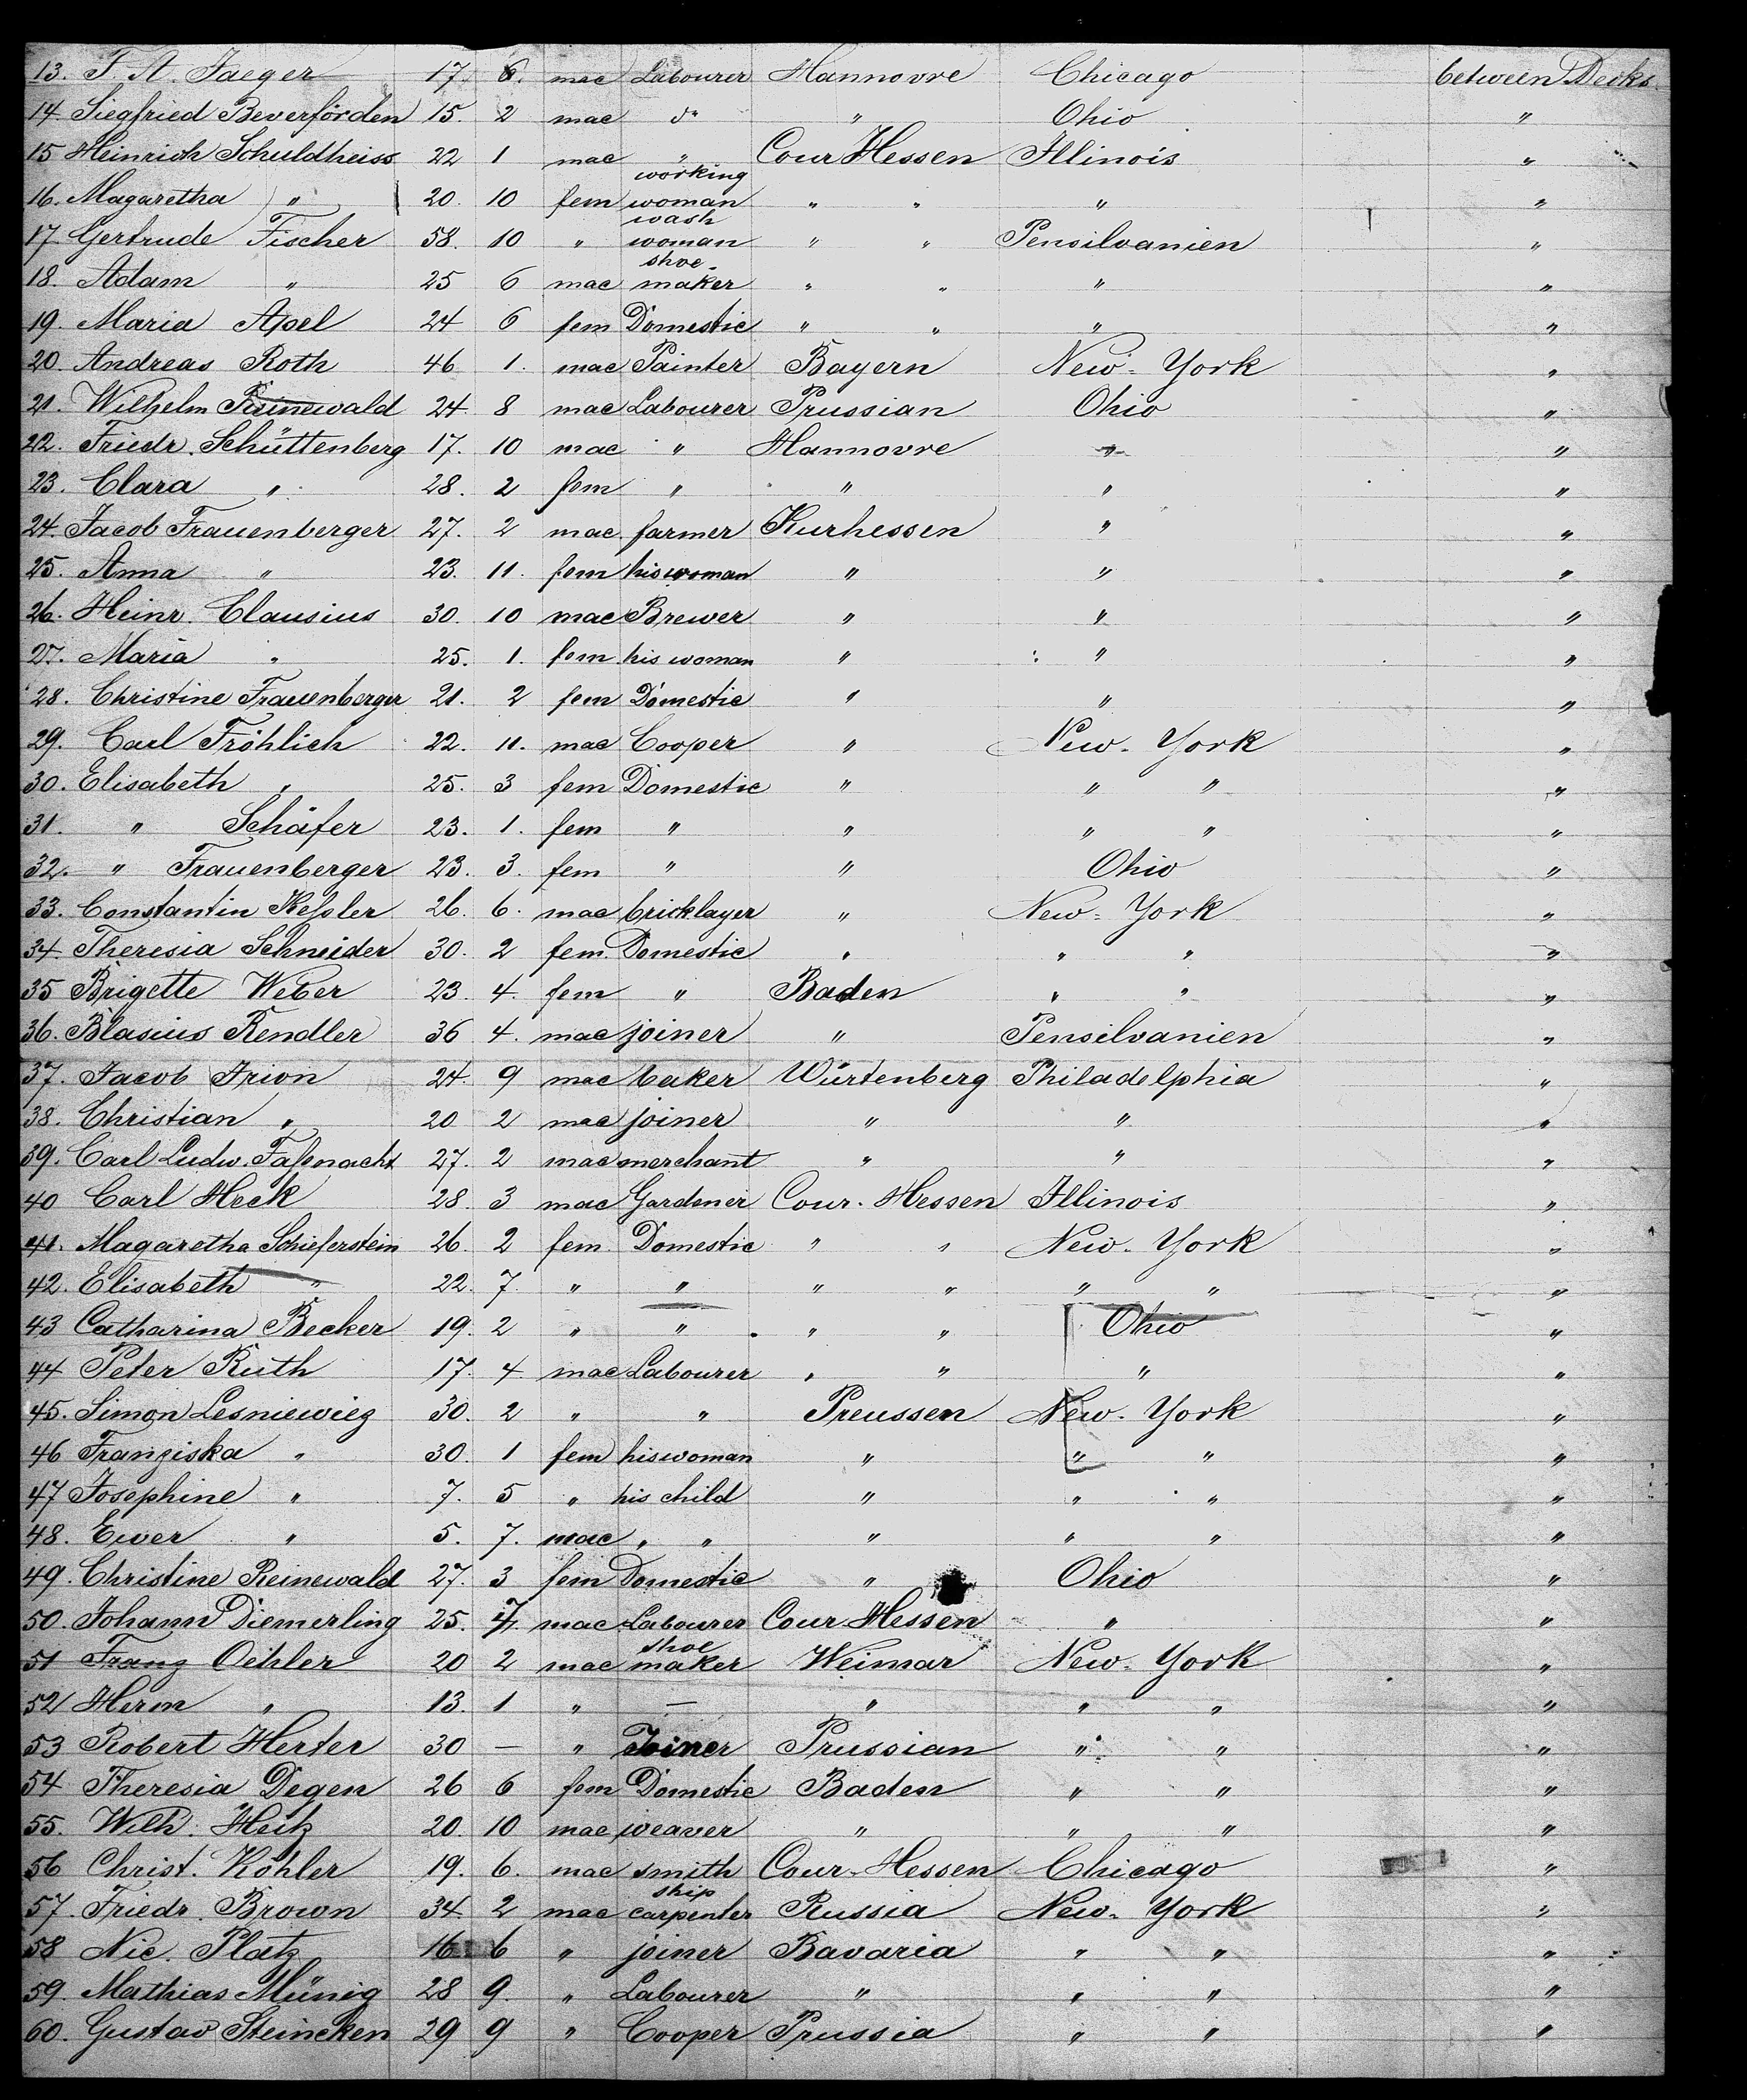 13. F. A. Jaeger 17. 6. mac Labourer Hannovre Chicago between Decks.
14 Siegfried Beverförden 15. 2 mac do " Ohio "
15 Heinrich Schuldheiss 22 1 mac " Cour Hessen Illinois "
16. Magaretha " 20. 10 fem working woman " " " "
17 Gertrude Fischer 58. 10 " wash woman " " Pensilvanien "
18. Adam " 25 6 mac shoe maker " " " "
19. Maria Apel 24 6 fem Domestic " " " "
20. Andreas Roth 46 1. mac Painter Bayern New-York "
21. Wilhelm 24. 8 mac Labourer Prussian Ohio "
22. Friedr. Schüttenberg 17. 10 mac " Hannovre " "
23. Clara " 28. 2 fem " " " "
24. Jacob Frauenberger 27. 2 mac. farmer Kurhessen " "
25. Anna " 23. 11. fem his woman " " "
26. Heinr. Clausius 30. 10 mac Brewer " " "
27. Maria " 25. 1. fem. his woman " " "
28. Christine Frauenberger 21. 2 fem Domestic " " "
29. Carl Fröhlich 22. 11. mac Cooper " New-York "
30. Elisabeth " 25. 3 fem Domestic " " " "
31. " Schäfer 23. 1. fem " " " " "
32. " Frauenberger 23. 3. fem " " Ohio "
33. Constantin Keßler 26. 6. mac bricklayer " New-York "
34 Theresia Schneider 30. 2 fem. Domestic " " " "
35 Brigette Weber 23. 4. fem " Baden " " "
36. Blasius Rendler 36 4. mac joiner " Pensilvanien "
37. Jacob Irion 24. 9 mac baker Würtenberg Philadelphia "
38. Christian " 20 2 mac joiner " " "
39. Carl Ludw. Faßnacht 27. 2 mac merchant " " "
40 Carl Heck 28. 3 mac Gardener Cour-Hessen Illinois "
41. Magaretha Schieferstein 26. 2 fem. Domestic " " New-York "
42. Elisabeth " 22. 7. " " " " " " "
43 Catharina Becker 19. 2 " " " " Ohio "
44 Peter Ruth 17. 4 mac Labourer " " " "
45. Simon Lesniewicz 30. 2 " " Preussen New-York "
46 Franziska " 30. 1 fem his woman " " " "
47 Josephine " 7. 5 " his child " " " "
48. Ewer " 5. 7. mac " " " " " "
49. Christine Reinewald 27. 3 fem Domestic " Ohio "
50. Johann Diemerling 25. 7 mac Labourer Cour-Hessen " "
51 Franz Oehler 20 2 mac shoe maker Weimar New-York "
52 Herm " 13. 1 " — " " " "
53 Robert Herter 30 — " Joiner Prussian " " "
54 Theresia Degen 26 6 fem Domestic Baden " " "
55. Wilh. Heitz 20. 10 mac weaver " " " "
56 Christ. Köhler 19. 6. mac smith Cour-Hessen Chicago "
57. Friedr. Brown 34 2 mac ship carpenter Russia New-York "
58 Nic. Platz 16 6 " joiner Bavaria " " "
59. Mathias Münig 28 9. " Labourer " " " "
60. Gustav Steincken 29 9 " Cooper Prussia " " "